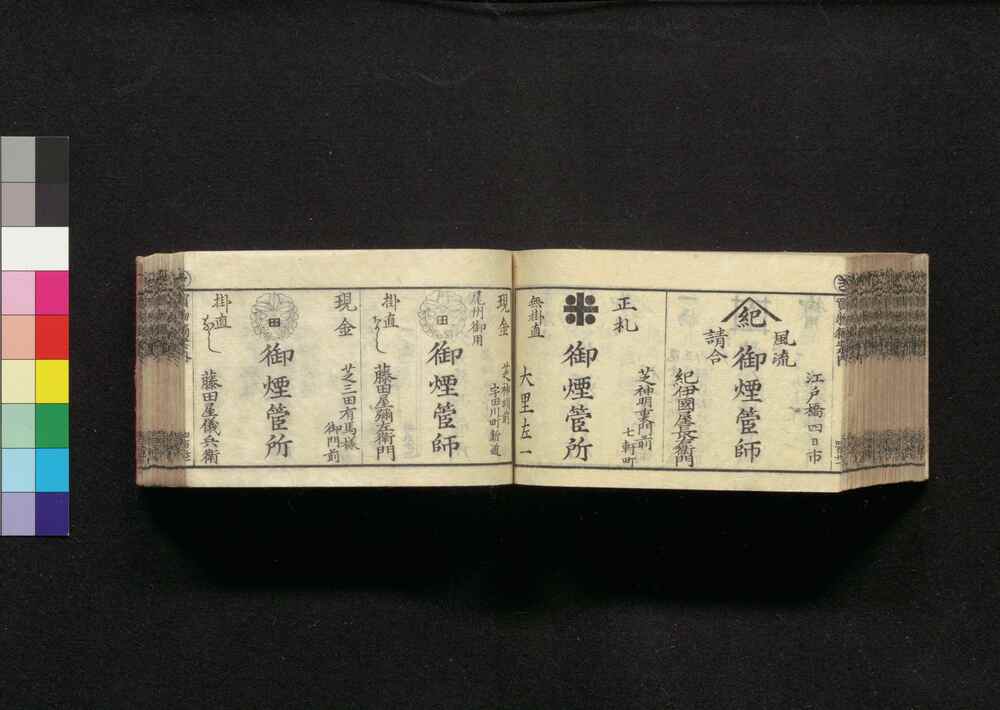 江戸橋四日市
風流
紀
御煙管師
請合
紀伊國屋㐂兵衛門
芝神明宮門前
七軒町
正札
御煙管所
無掛直
大里左一
現金
芝神明前
宇田川町新道
尾州御用
田
御煙管師
掛直なし
藤田屋彌左衛門
芝三田有馬様
御門前
現金
田
御煙管所
掛直なし
藤田屋儀兵衛